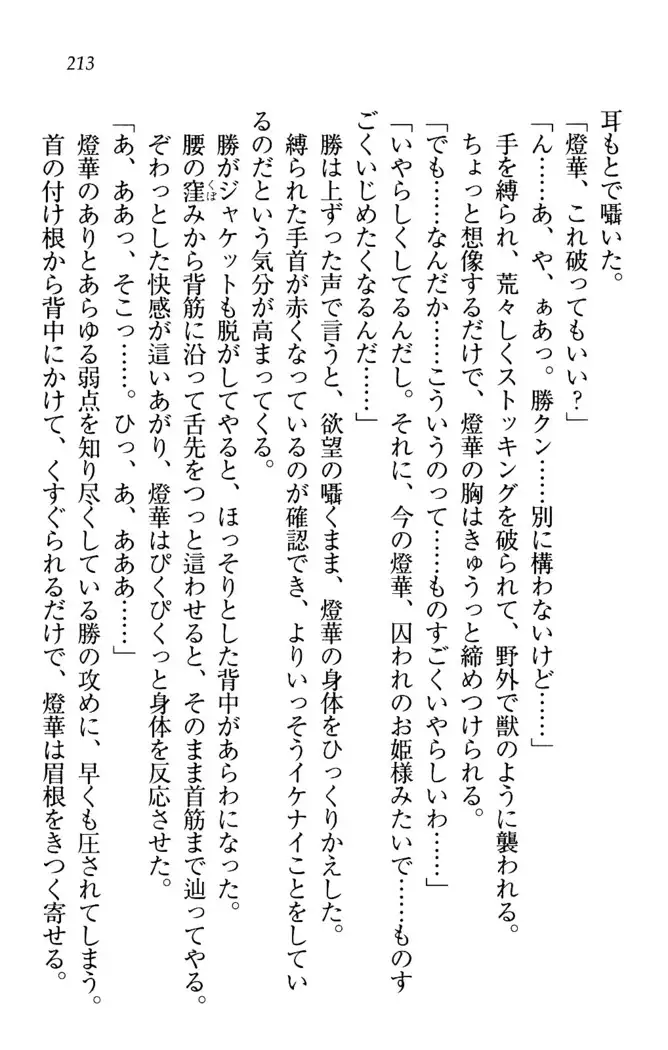 213
耳もとで囁いた。
「燈華、これ破ってもいい？」
「ん……あ、や、ぁあっ。勝クン……別に構わないけど……」
手を縛られ、荒々しくストッキングを破られて、野外で獣のように襲われる。
ちょっと想像するだけで、燈華の胸はきゅうっと締めつけられる。
「でも……なんだか……こういうのって……ものすごくいやらしいわ……」
「いやらしくしてるんだし。それに、今の燈華、囚われのお姫様みたいで……ものす
ごくいじめたくなるんだ……」
勝は上ずった声で言うと、欲望の囁くまま、燈華の身体をひっくりかえした。
縛られた手首が赤くなっているのが確認でき、よりいっそうイケナイことをしてい
るのだという気分が高まってくる。
勝がジャケットも脱がしてやると、ほっそりとした背中があらわになった。
腰の窪みから背筋に沿って舌先をつっと這わせると、そのまま首筋まで辿ってやる。
くぼ
ぞわっとした快感が這いあがり、燈華はぴくぴくっと身体を反応させた。
「あ、ああっ、そこっ……。ひっ、あ、あああ……」
燈華のありとあらゆる弱点を知り尽くしている勝の攻めに、早くも圧されてしまう。
首の付け根から背中にかけて、くすぐられるだけで、燈華は眉根をきつく寄せる。